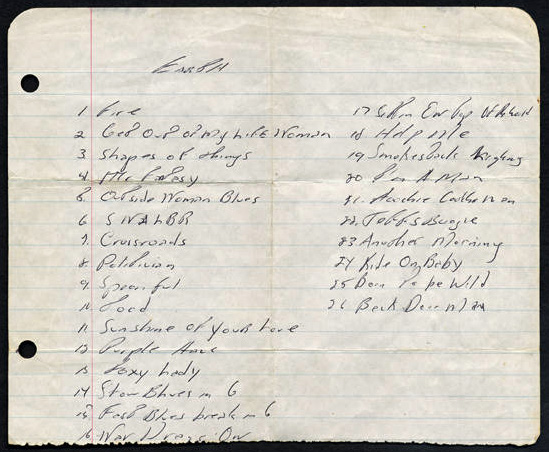 Earth
1 Fire
2 Get Out of My Life Woman
3 Shapes of things
4
5. Outside Woman Blues
6 SWALBR
7. Crossroads
8. Politician
9 Spoonful
10 Toad
11 Sunshine of your Love
12 Purple Haze
13 Foxy Lady
14 Slow Blues in G
15 Fast Blues break in G
16 War Drags On
17
18 Help Me
19 Smokestack
20 A Man
21. Hoochie Coochie Man
22. Jeff's Boogie
23 Another Morning
24 Ride On Baby
25 Born To be Wild
26 Back Door Man